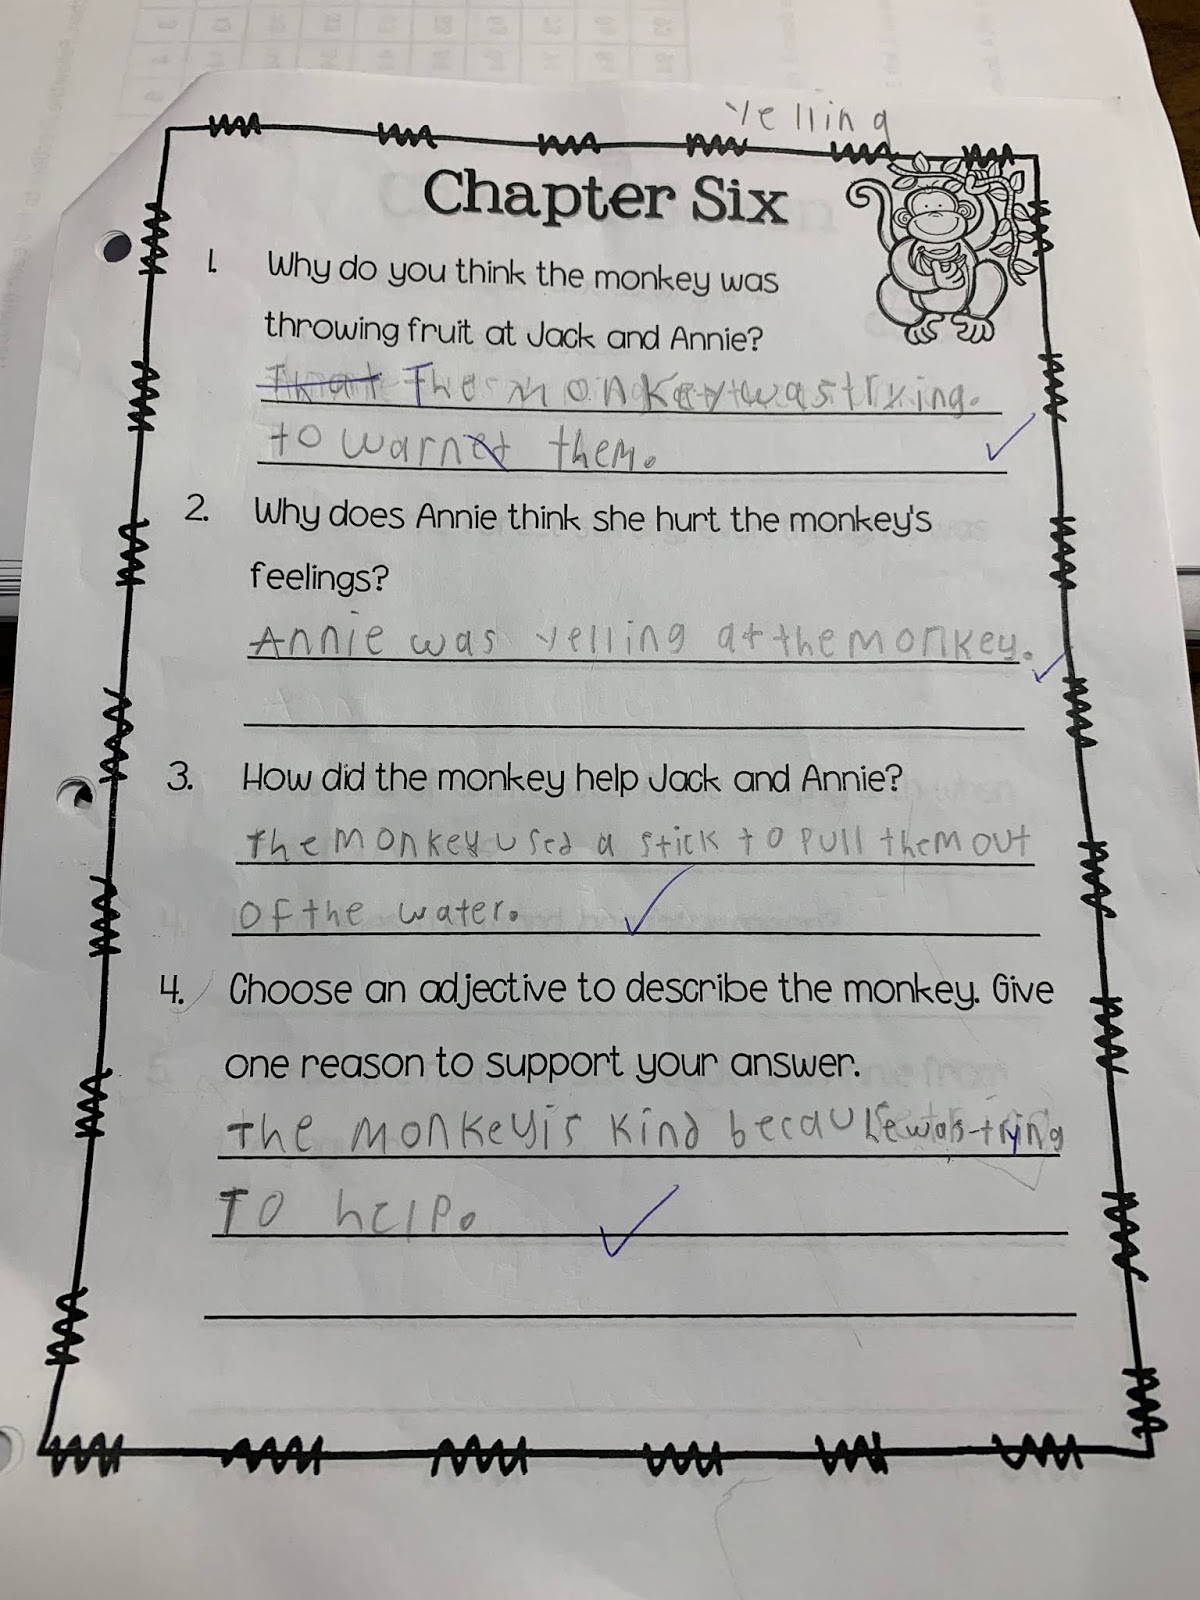 yelling
Chapter Six
1. Why do you think the monkey was
throwing fruit at Jack and Annie?
The monkey was trying.
to warn them.
2. Why does Annie think she hurt the monkey's
feelings?
Annie was yelling at the monkey.
3. How did the monkey help Jack and Annie?
the monkey used a stick to pull them out
of the water.
4. Choose an adjective to describe the monkey. Give
one reason to support your answer.
the monkey is kind becau he was trying
To help.